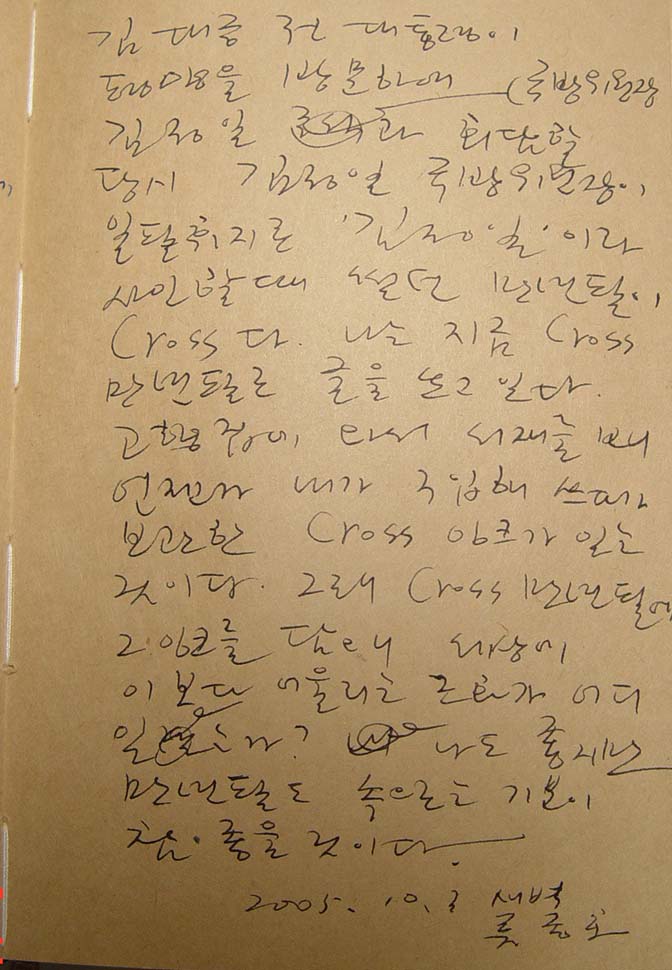 김대중 전 대통령이
평양을 방문하여 (국방위원장
김정일 과 회담할
당시 김정일 국방위원장이
일탈취지로 '김정일'이라
사인할때 썼던 만년필이
Cross다. 나는 지금 Cross
만년필로 글을 쓰고 있다.
고향집에 와서 서재를 보니
언젠가 내가 구입해 쓰다가
보관한 Cross 잉크가 있는
것이다. 그래 Cross 만년필에
그 잉크를 담으니 세상에
이보다 어울리는 조화가 어디
있는가? 나도 좋지만
만년필도 속으로는 기분이
참 좋을 것이다.
2005. 10. 3 새벽